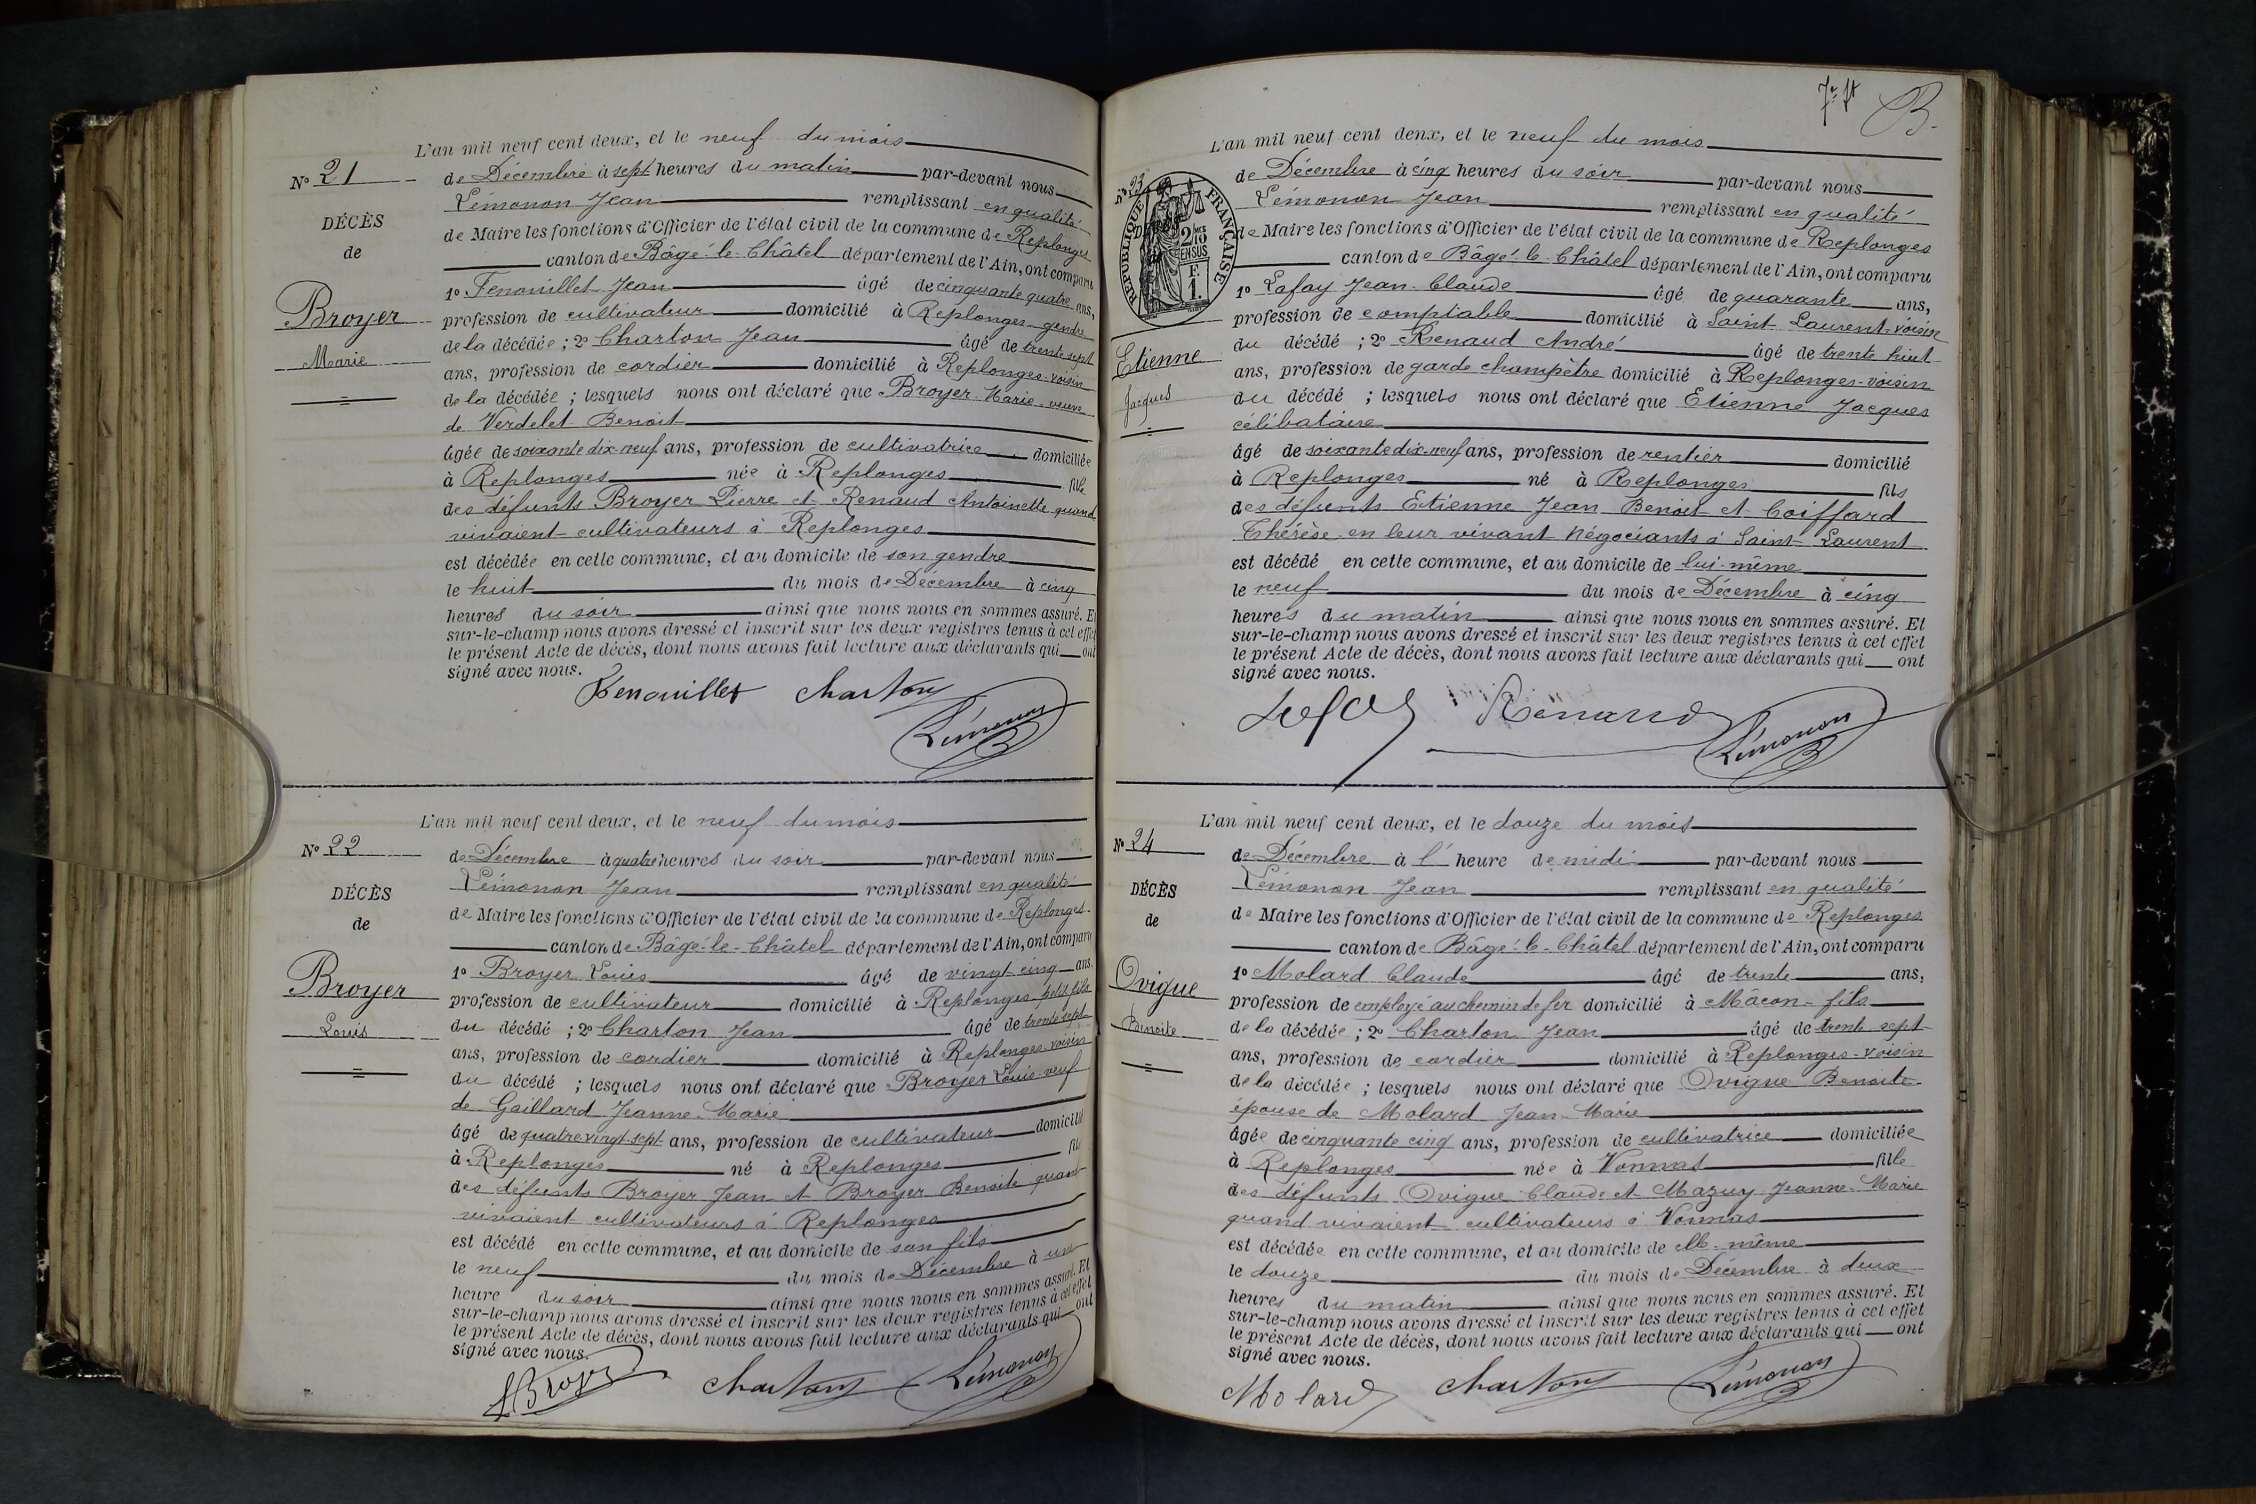 L'an mil neuf cent deux, et le neuf du mois
N° 21
de Décembre à sept heures du matin par-devant nous
Lémonon Jean remplissant en qualité
DÉCÈS
de Maire les fonctions d'Officier de l'état civil de la commune de Replonges
de
canton de Bâgé-le-Châtel département de l'Ain, ont comparu
1° Fenouillet Jean âgé de cinquante quatre ans,
Broyer
profession de cultivateur domicilié à Replonges gendre
de la décédée ; 2° Charton Jean âgé de trente sept
Marie
ans, profession de cordier domicilié à Replonges-voisin
de la décédée ; lesquels nous ont déclaré que Broyer Marie veuve
de Verdelet Benoit
âgée de soixante dix-neuf ans, profession de cultivatrice domiciliée
à Replonges née à Replonges fille
des défunts Broyer Pierre et Renaud Antoinette quand
vivaient cultivateurs à Replonges
est décédée en cette commune, et au domicile de son gendre
le huit du mois de Décembre à cinq
heures du soir ainsi que nous nous en sommes assuré. Et
sur-le-champ nous avons dressé et inscrit sur les deux registres tenus à cet effet
le présent Acte de décès, dont nous avons fait lecture aux déclarants qui ont
signé avec nous.
Fenouillet Charton
Lémonon
L'an mil neuf cent deux, et le neuf du mois
N° 22
de Décembre à quatre heures du soir par-devant nous
Lémonon Jean remplissant en qualité
DÉCÈS
de Maire les fonctions d'Officier de l'état civil de la commune de Replonges
de
canton de Bâgé-le-Châtel département de l'Ain, ont comparu
1° Broyer Louis âgé de vingt cinq ans
Broyer
profession de cultivateur domicilié à Replonges petit fils
Louis
du décédé ; 2° Charton Jean âgé de trente sept
ans, profession de cordier domicilié à Replonges voisin
du décédé ; lesquels nous ont déclaré que Broyer Louis veuf
de Gaillard Jeanne-Marie
âgé de quatre vingt sept ans, profession de cultivateur domicilié
à Replonges né à Replonges fils
des défunts Broyer Jean et Broyer Benoite quand
vivaient cultivateurs à Replonges
est décédé en cette commune, et au domicile de son fils
le neuf du mois de Décembre à une
heure du soir ainsi que nous nous en sommes assuré. Et
sur-le-champ nous avons dressé et inscrit sur les deux registres tenus à cet effet
le présent Acte de décès, dont nous avons fait lecture aux déclarants qui ont
signé avec nous.
LBroyer Charton Lémonon
7e ft B.
L'an mil neuf cent deux, et le neuf du mois
N° 23
de Décembre à cinq heures du soir par-devant nous
Lémonon Jean remplissant en qualité
RÉPUBLIQUE FRANÇAISE
2/10 EN SUS
F. 1.
de Maire les fonctions d'Officier de l'état civil de la commune de Replonges
canton de Bâgé-le-Châtel département de l'Ain, ont comparu
1° Lafay Jean-Claude âgé de quarante ans,
profession de comptable domicilié à Saint-Laurent-voisin
Etienne
du décédé ; 2° Renaud André âgé de trente huit
ans, profession de garde champêtre domicilié à Replonges-voisin
Jacques
du décédé ; lesquels nous ont déclaré que Etienne Jacques
célibataire
âgé de soixante dix-neuf ans, profession de rentier domicilié
à Replonges né à Replonges fils
des défunts Etienne Jean Benoit et Coiffard
Thérèse en leur vivant négociants à Saint-Laurent
est décédé en cette commune, et au domicile de lui-même
le neuf du mois de Décembre à cinq
heures du matin ainsi que nous nous en sommes assuré. Et
sur-le-champ nous avons dressé et inscrit sur les deux registres tenus à cet effet
le présent Acte de décès, dont nous avons fait lecture aux déclarants qui ont
signé avec nous.
Lafay Renaud Lémonon
L'an mil neuf cent deux, et le douze du mois
N° 24
de Décembre à l' heure de midi par-devant nous
Lémonon Jean remplissant en qualité
DÉCÈS
de Maire les fonctions d'Officier de l'état civil de la commune de Replonges
de
canton de Bâgé-le-Châtel département de l'Ain, ont comparu
1° Molard Claude âgé de trente ans,
Ovigue
profession de employé au chemin de fer domicilié à Mâcon-fils
Benoite
de la décédée ; 2° Charton Jean âgé de trente sept
ans, profession de cordier domicilié à Replonges-voisin
de la décédée ; lesquels nous ont déclaré que Ovigue Benoite
épouse de Molard Jean-Marie
âgée de cinquante cinq ans, profession de cultivatrice domiciliée
à Replonges née à Vonnas fille
des défunts Ovigue Claude et Mazuy Jeanne-Marie
quand vivaient cultivateurs à Vonnas
est décédée en cette commune, et au domicile de elle-même
le douze du mois de Décembre à deux
heures du matin ainsi que nous nous en sommes assuré. Et
sur-le-champ nous avons dressé et inscrit sur les deux registres tenus à cet effet
le présent Acte de décès, dont nous avons fait lecture aux déclarants qui ont
signé avec nous.
Molard Charton Lémonon